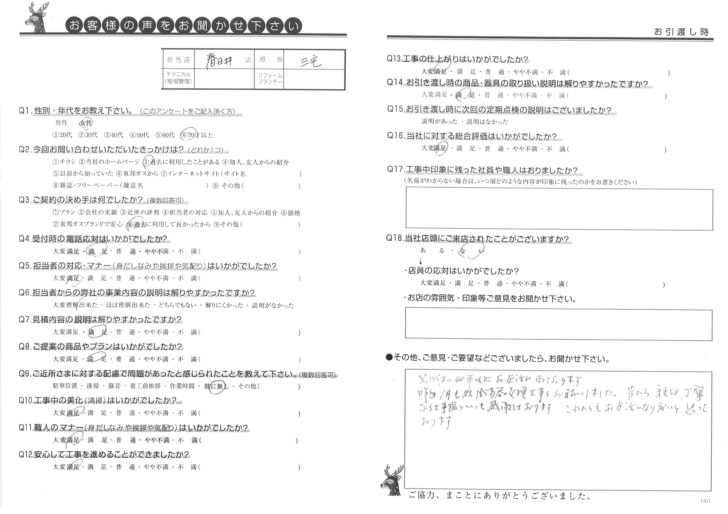 お客様の声をお聞かせ下さい
担当店 春日井 店 担当 三宅
テクニカル(現場管理) リフォームプランナー
Q1.性別・年代をお教え下さい。(このアンケートをご記入頂く方)
男性 女性
①20代 ②30代 ③40代 ④50代 ⑤60代 ⑥70才以上
Q2.今回お問い合わせいただいたきっかけは?(どれか1つ)
①チラシ ②当社のホームページ ③過去に利用したことがある ④知人、友人からの紹介
⑤以前から知っていた ⑥東邦ガスから ⑦インターネットサイト(サイト名 )
⑧雑誌・フリーペーパー(雑誌名 ) ⑨その他( )
Q3.ご契約の決め手は何でしたか?(複数回答可)
①プラン ②会社の実績 ③近所の評判 ④担当者の対応 ⑤知人、友人からの紹介 ⑥価格
⑦東邦ガスブランドで安心 ⑧過去に利用して良かったから ⑨その他( )
Q4.受付時の電話応対はいかがでしたか?
大変満足・満 足・普 通・やや不満・不 満( )
Q5.担当者の対応・マナー(身だしなみや挨拶や気配り)はいかがでしたか?
大変満足・満 足・普 通・やや不満・不 満( )
Q6.担当者からの弊社の事業内容の説明は解りやすかったですか?
大変理解出来た・ほぼ理解出来た・どちらでもない・解りにくかった・説明がなかった
Q7.見積内容の説明は解りやすかったですか?
大変満足・満 足・普 通・やや不満・不 満( )
Q8.ご提案の商品やプランはいかがでしたか?
大変満足・満 足・普 通・やや不満・不 満( )
Q9.ご近所さまに対する配慮で問題があったと感じられたことを教えて下さい。(複数回答可)
駐車位置・清掃・騒音・着工前挨拶・作業時間・特に無し・その他( )
Q10.工事中の美化(清掃)はいかがでしたか?
大変満足・満 足・普 通・やや不満・不 満( )
Q11.職人のマナー(身だしなみや挨拶や気配り)はいかがでしたか?
大変満足・満 足・普 通・やや不満・不 満( )
Q12.安心して工事を進めることができましたか?
大変満足・満 足・普 通・やや不満・不 満( )
お引渡し時
Q13.工事の仕上がりはいかがでしたか?
大変満足・満 足・普 通・やや不満・不 満( )
Q14.お引き渡し時の商品・器具の取り扱い説明は解りやすかったですか?
大変満足・満 足・普 通・やや不満・不 満( )
Q15.お引き渡し時に次回の定期点検の説明はございましたか?
説明があった・説明はなかった
Q16.当社に対する総合評価はいかがでしたか?
大変満足・満 足・普 通・やや不満・不 満( )
Q17.工事中印象に残った社員や職人はおりましたか?
(名前がわからない場合は、いつ頃どのような内容が印象に残ったのかをお書きください)
Q18.当社店頭にご来店されたことがございますか?
ある・ない
↓
・店員の応対はいかがでしたか?
大変満足・満 足・普 通・やや不満・不 満( )
・お店の雰囲気・印象等ご意見をお聞かせ下さい。
●その他、ご意見・ご要望などございましたら、お聞かせ下さい。
おります
ご協力、まことにありがとうございました。